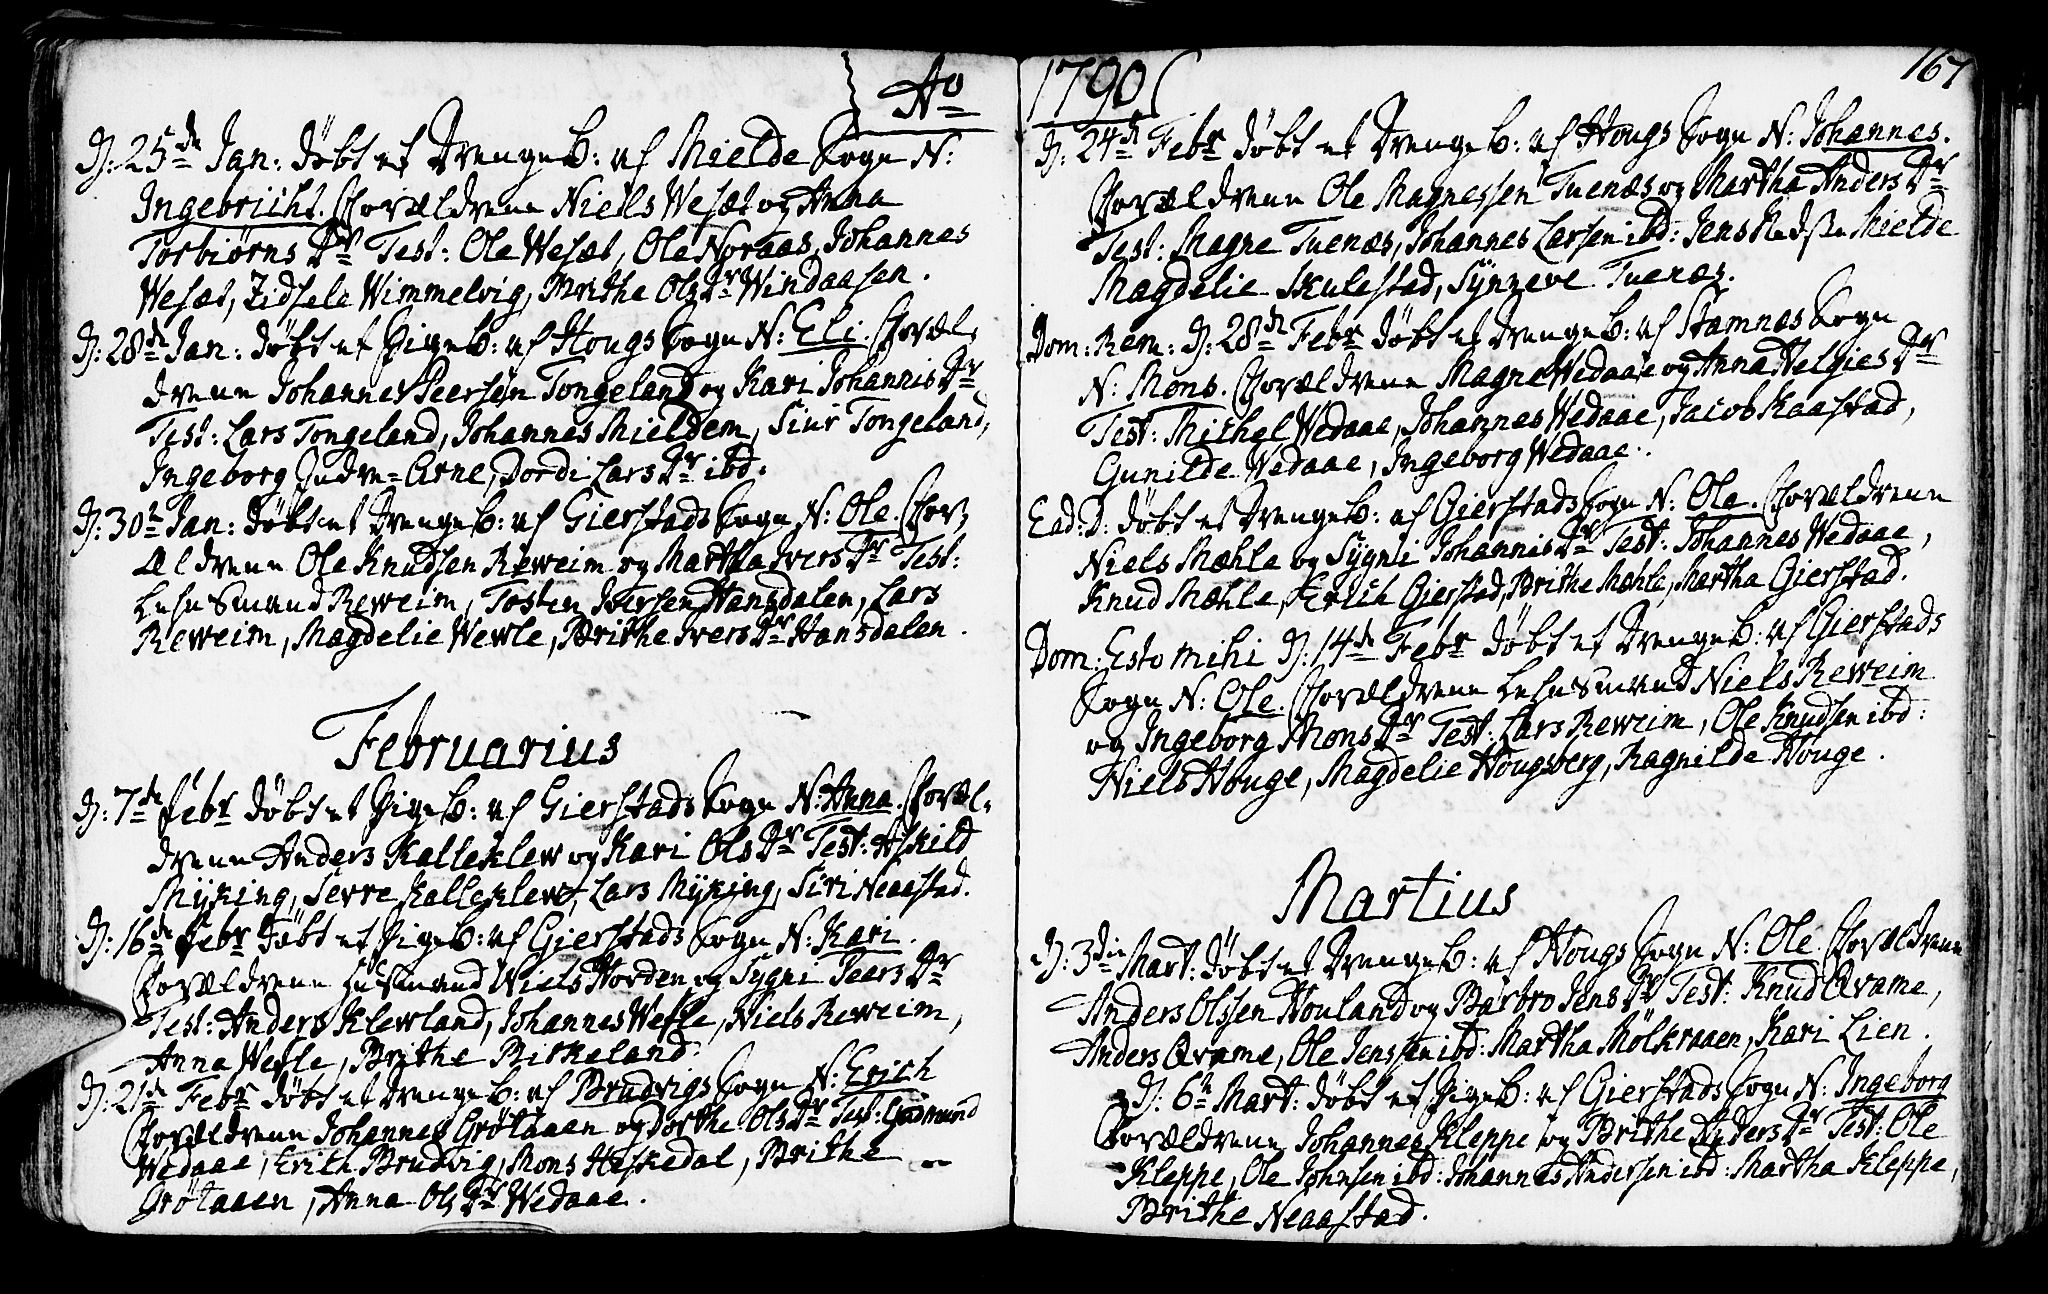 Ao
D: 25de Jan: døbt et DrengeB: af Mielde Sogn N:
Ingebricht. Forældrene Niels Wesæt og Anna
Torbiørns Dr Test: Ole Wesæt, Ole Noraas, Johannes
Wesæt, Zidsele Wimmelvig, Brithe Ols Dr Windaasen.
D: 28de Jan: døbt et PigeB: af Hougs Sogn N: Eli. Foræl-
drene Johannes Peersøn Tongeland og Kari Johannis Dr
Test: Lars Tongeland, Johannes Mieldem, Siur Tongeland,
Ingeborg Indre=Arne, Dordi Lars Dr ibd.
D: 30te Jan: døbt et DrengeB: af Gierstads Sogn N: Ole. For-
ældrene Ole Knudsen Reweim og Martha Ivers Dr Test:
Lehnsmand Reweim, Tosten Iversen Hansdalen, Lars
Reweim, Magdelie Wewle, Brithe Ivers Dr Hansdalen.
Februarius
D: 7de Febr døbt et PigeB: af Gierstads Sogn N: Anna. Foræl-
drene Anders Kalleklew og Kari Ols Dr Test: Askild
Myking, Serre Kalleklew, Lars Myking, Siri Neaastad.
D: 16de Febr døbt et PigeB: af Gierstads Sogn N: Kari.
Forældrene Husmand Niels Horden og Sygni Peers Dr
Test: Anders Klewland, Johannes Wefle, Niels Reweim,
Anna Wefle, Brithe Birkeland.
D: 21de Febr døbt et DrengeB: af Brudvigs Sogn N: Erich
Forældrene Johannes Grøtaaen og Dorthe Ols Dr Test: Gudmund
Wedaae, Erich Brudvig, Mons Heskedal, Brithe
Grøtaaen, Anna Ols Dr Wedaae.
1790
167
D: 24de Febr døbt et DrengeB: af Hougs Sogn N: Johannes.
Forældrene Ole Magnessen Tuenæs og Martha Anders Dr
Test: Magne Tuenæs, Johannes Larsen ibd: Jens Mielde
Magdelie Skulestad, Synneve Tuenæs.
Dom: Rem: D: 28de Febr døbt et DrengeB: af Stamnæs Sogn
N: Mons. Forældrene Magne Wedaae og Anna Helgies Dr
Test: Michel Wedaae, Johannes Wedaae, Jacob Kaastad,
Gunilde Wedaae, Ingeborg Wedaae.
Ead: D: døbt et DrengeB: af Gierstads Sogn N: Ole. Forældrene
Niels Mæhle og Sygni Johannis Dr Test: Johannes Wedaae,
Knud Mæhle, Erich Gierstad, Brithe Mæhle, Martha Gierstad.
Dom: Esto mihi D: 14de Febr døbt et DrengeB: af Gierstads
Sogn N: Ole. Forældrene Lehnsmand Niels Reweim
og Ingeborg Mons Dr Test: Lars Reweim, Ole Knudsen ibd:
Niels Houge, Magdelie Hougsberg, Ragnilde Houge.
Martius
D: 3die Mart: døbt et DrengeB: af Hougs Sogn N: Ole. Forældrene
Anders Olssen Houland og Barbro Jens Dr Test: Knud Qvame,
Anders Qvame, Ole Jenssen ibd: Martha Mølkraaen, Kari Lien.
D: 6te Mart: døbt et PigeB: af Gierstads Sogn N: Ingeborg
Forældrene Johannes Kleppe og Brithe Anders Dr Test: Ole
Kleppe, Ole Johnsen ibd: Johannes Andersen ibd: Martha Kleppe,
Brithe Neaastad.